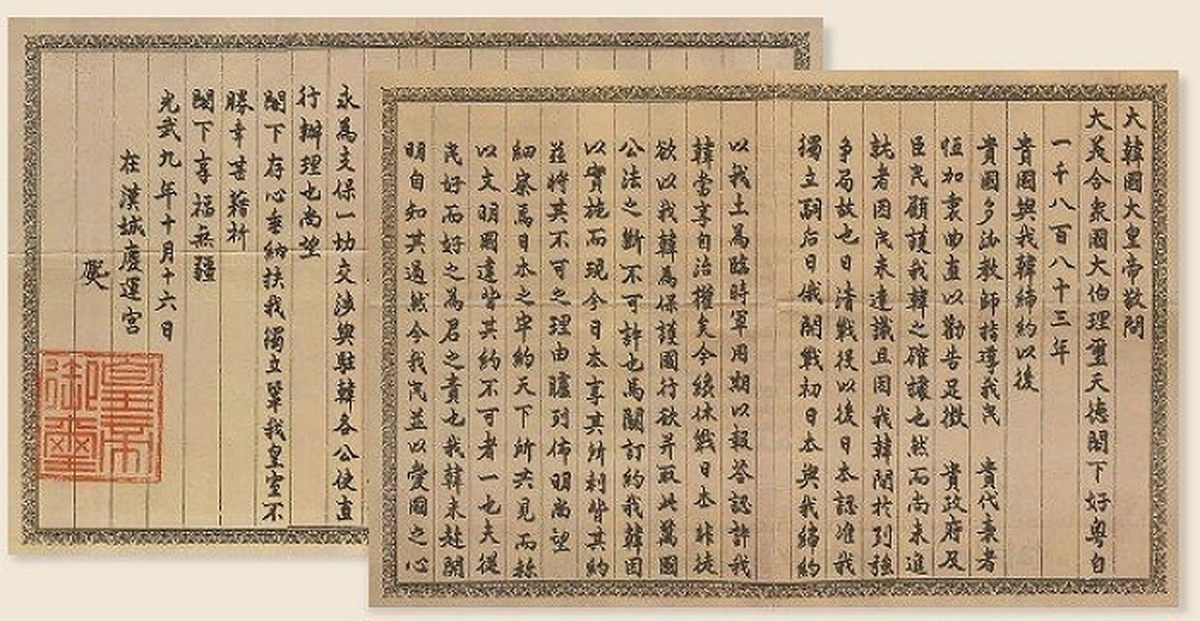 大韓國大皇帝敬問
大美合衆國大伯理璽天德閣下好粤自
一千八百八十三年
貴國與我韓締約以後
貴國多派教師指導我民 貴代表者
恒加衷曲直以勸告足徵 貴政府及
臣民顧護我韓之確據也然而尚未進
就者因民未達識且因我韓關於列強
爭局故也日清戰役以後日本認准我
獨立嗣后日俄開戰初日本與我締約
以我土爲臨時軍用期以報答認許我
韓當享自治權矣今纔休戰日本非徒
欲以我韓爲保護國行欲并取此萬國
公法之斷不可許也爲訂約我韓因
以實施而現今日本享其所利皆其約
玆將其不可之理由臚列佈明尚望
細察焉日本之牢約天下所共見而
以文明國違背其約不可者一也夫從
民好而好之爲君之責也我韓未赴開
明自知其過然今我民並以愛國之心
永爲支保一切交涉與駐韓各公使直
行辦理也尚望
閣下存心垂納扶我獨立鞏我皇室不
勝幸甚藉祈
閣下享福無疆
光武九年十月十六日
在漢城慶運宮
皇帝
御璽